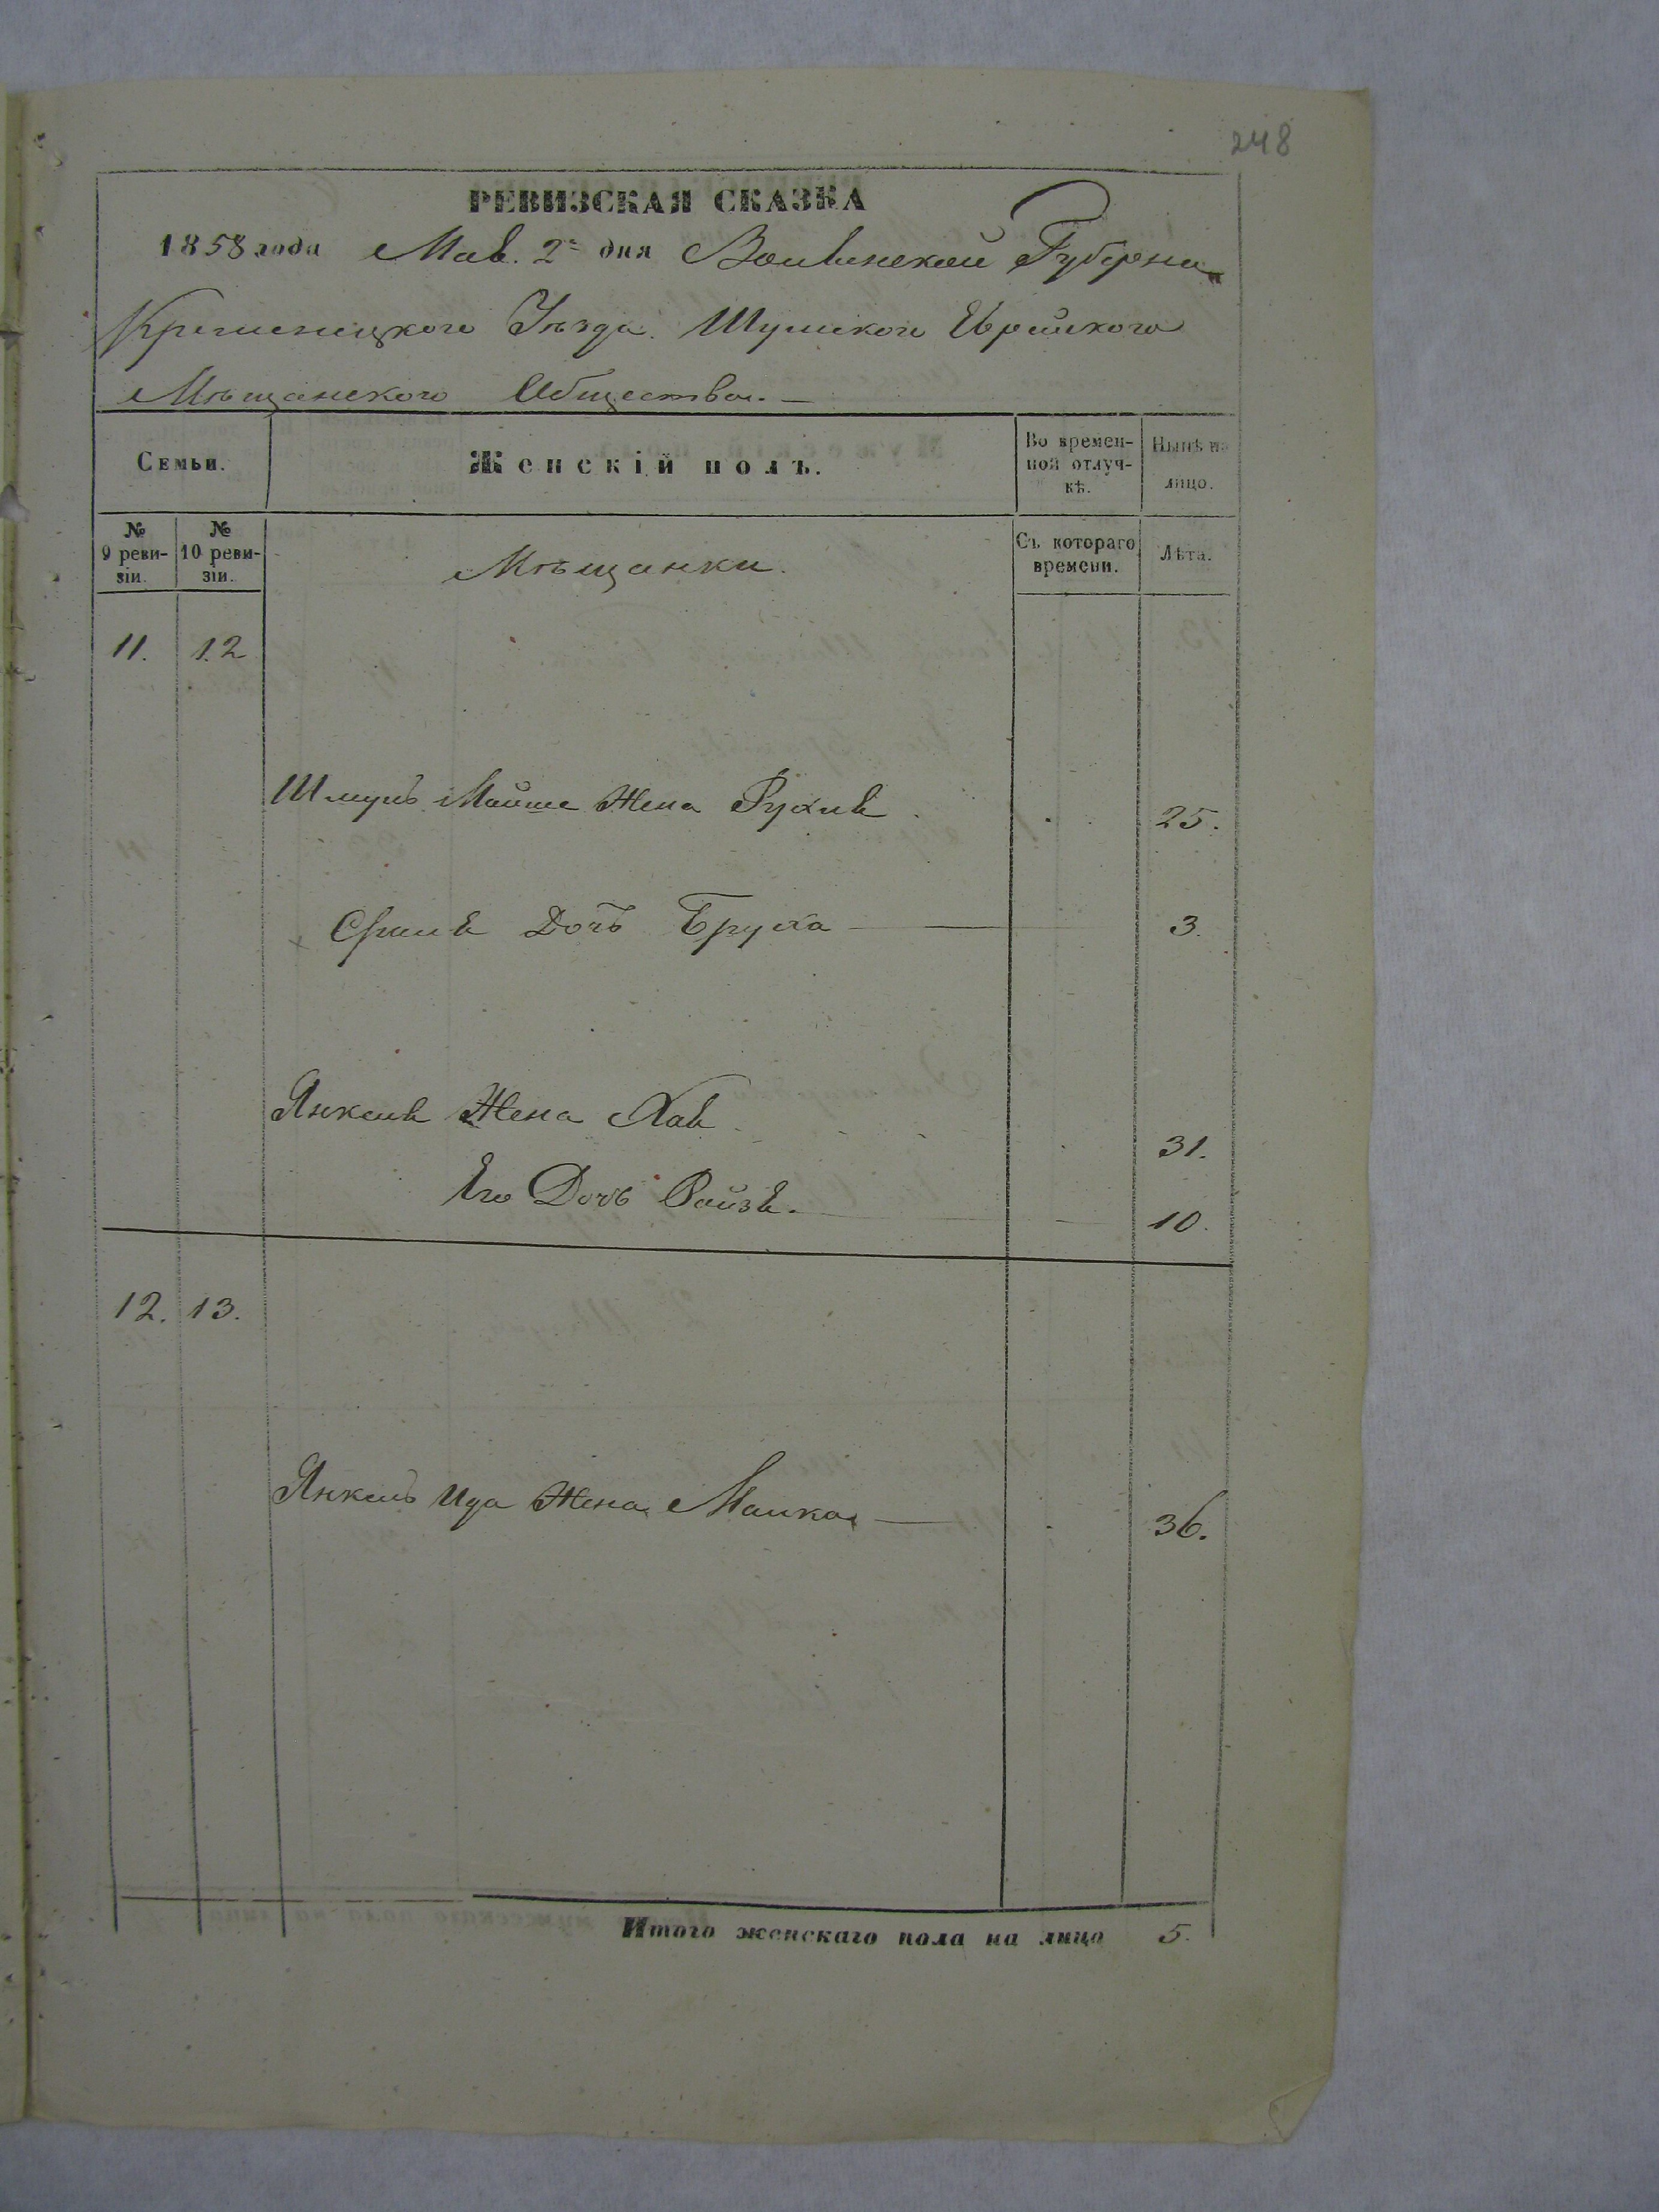 248
РЕВИЗСКАЯ СКАЗКА
1858 года Мая. 2го дня Волынской Губерніи
Кременецкого Уѣзда. Шумского Еврейского
Мѣщанского Общества. —
Семьи.
Женскій полъ.
Во времен-
ной отлуч-
кѣ.
Нынѣ на
лицо.
№
9 реви-
зіи.
№
10 реви-
зіи.
Мѣщанки.
Съ котораго
времени.
Лѣта.
11. 12
Шмуль Мойше Жена Рухля 25.
Дочь Бруха — 3.
Янкеля Жена Хая 31.
Его Дочь Ройзя. — 10.
12. 13.
Янкель Ида Жена Малка — 36.
Итого женскаго пола на лицо 5.